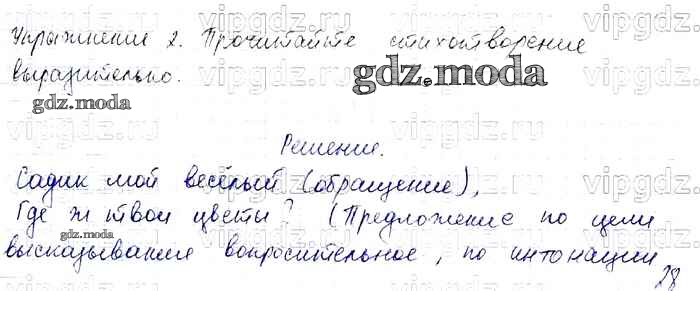 Упражнение 2. Прочитайте стихотворение
выразительно.
gdz.moda
gdz.moda
Решение.
Садик мой весёлый (обращение),
Где ж твои цветы? (Предложение по цели
gdz.moda
высказывания вопросительное, по интонации
28
vipgdz.ru
vipgdz.ru
vipgdz.ru
vipgdz.ru